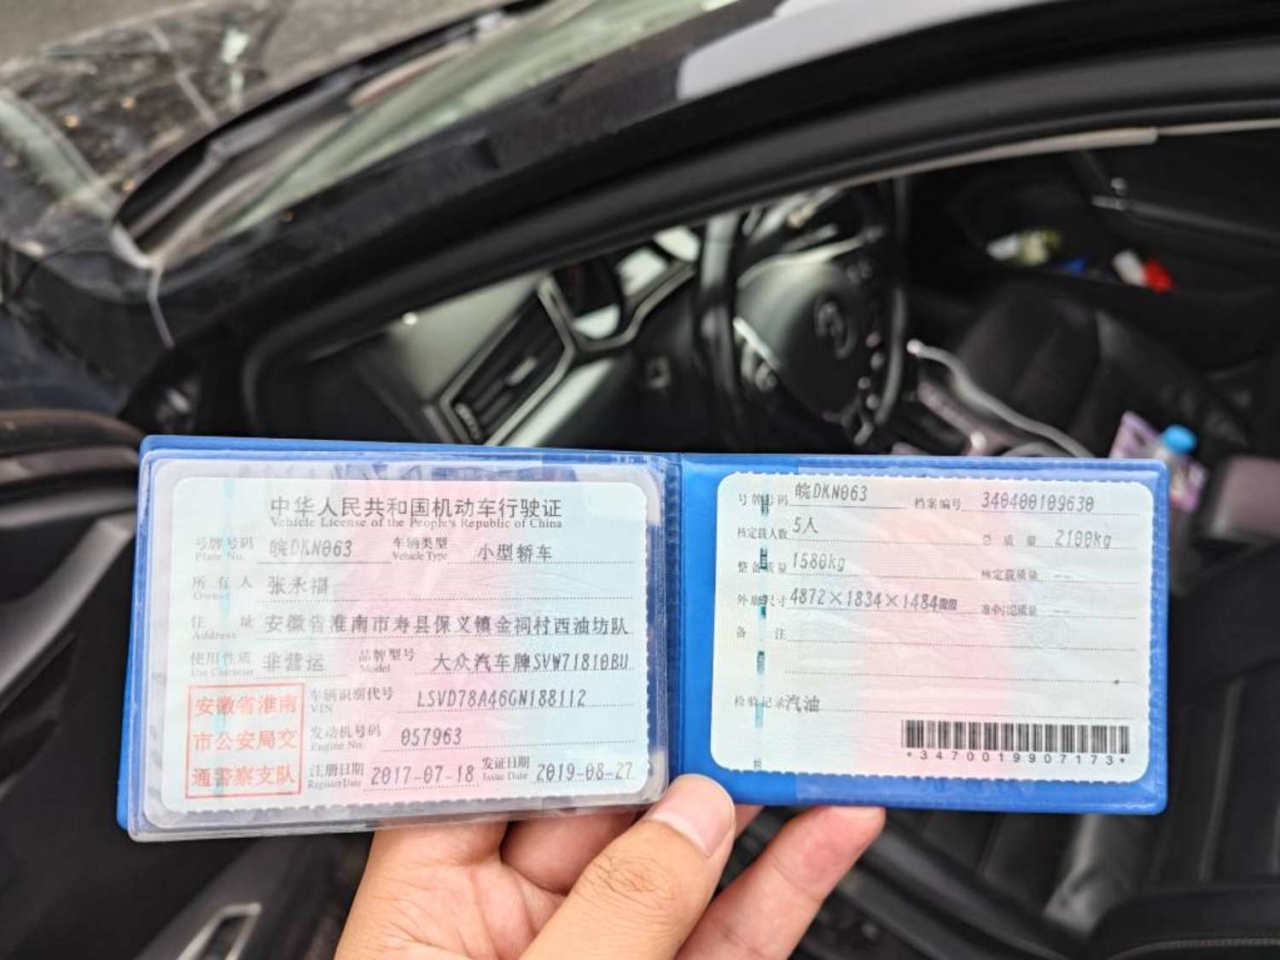 中华人民共和国机动车行驶证
Vehicle License of the People's Republic of China
号牌号码 皖DKN063 车辆类型 小型轿车
Plate No. Vehicle Type
所有人 张永福
Owner
住址 安徽省淮南市寿县保义镇金祠村西油坊队
Address
使用性质 非营运 品牌型号 大众汽车牌SVW71810BU
Use Character Model
安徽省淮南
市公安局交
通警察支队
车辆识别代号 LSVD78A46GN188112
VIN
发动机号码 057963
Engine No.
注册日期 2017-07-18 发证日期 2019-08-27
Register Date Issue Date
号牌号码 皖DKN063 档案编号 340400109630
核定载人数 5人 总质量 2100kg
整备质量 1580kg 核定载质量 --
外廓尺寸 4872×1834×1484mm 准牵引总质量 --
备注
检验记录 汽油
*3470019907173*